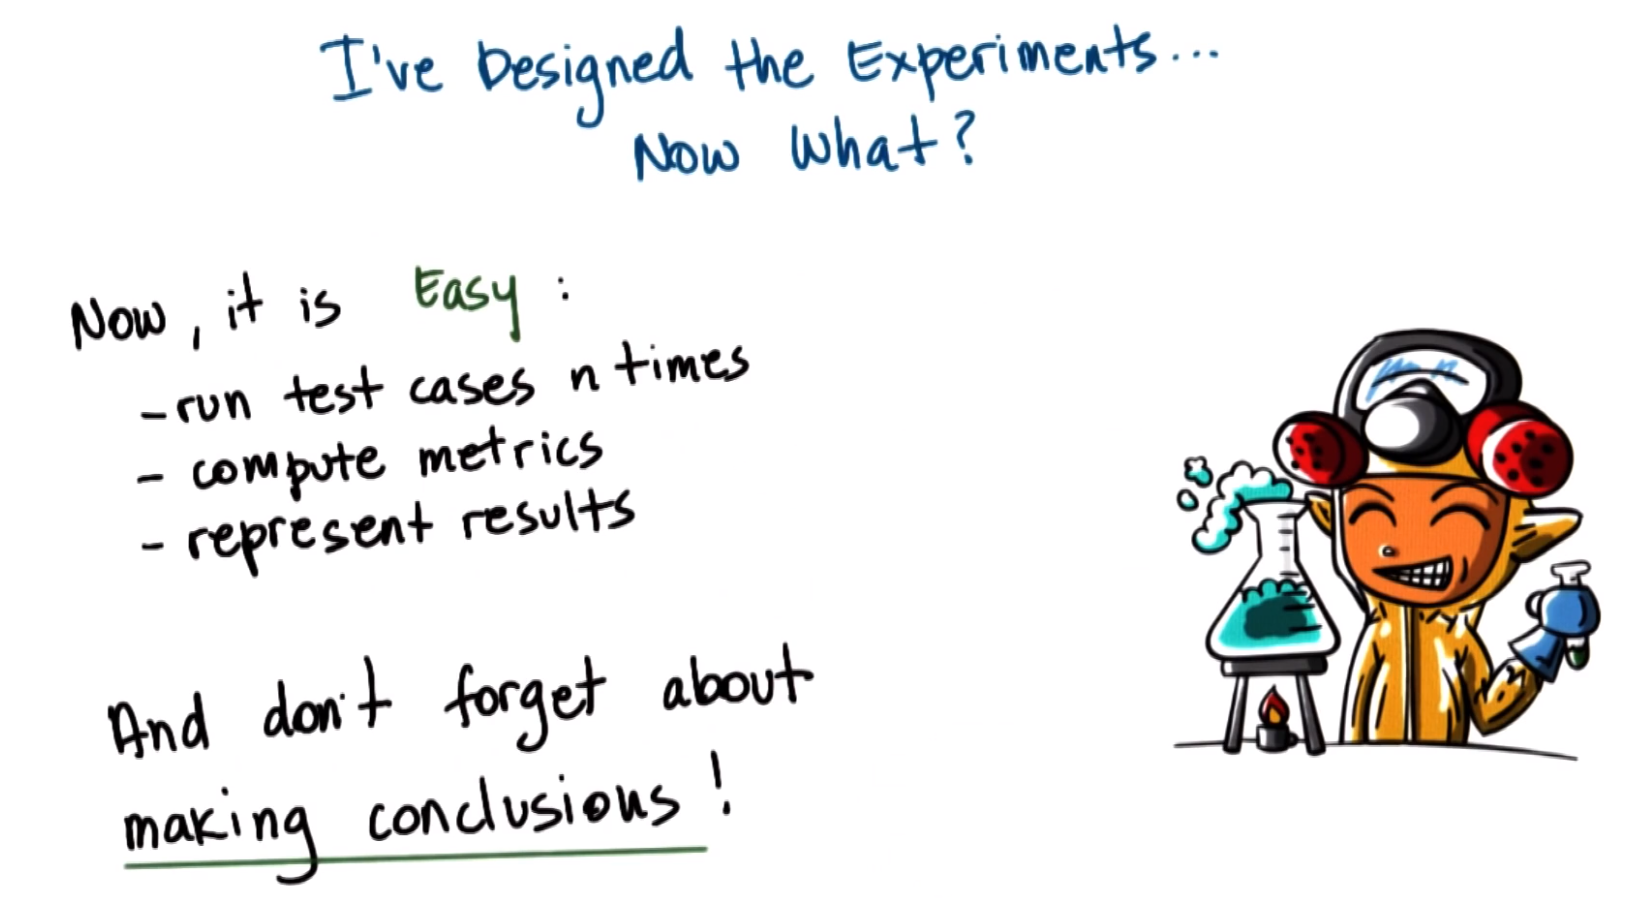 I've Designed the Experiments...
Now What?
Now, it is Easy:
- run test cases n times
- compute metrics
- represent results
And don't forget about
making conclusions!